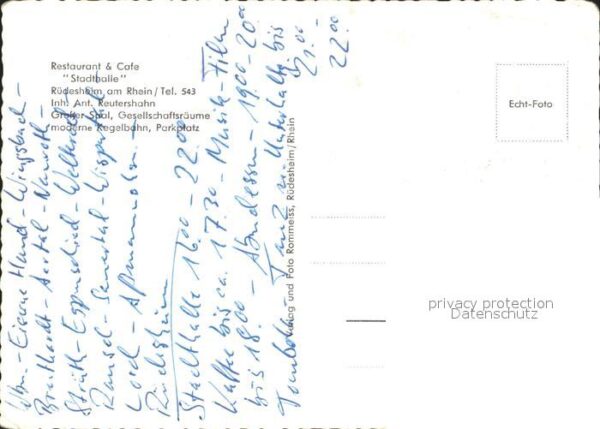 Restaurant & Cafe
"Stadthalle"
Rüdesheim am Rhein / Tel. 543
Inh. Ant. Reutershahn
Großer Saal, Gesellschaftsräume
moderne Kegelbahn, Parkplatz
Echt-Foto
Verlag und Foto Rommeiss, Rüdesheim/Rhein
privacy protection
Datenschutz
Wbn.- Eiserne Hand - Wingsbach -
Breithardt - Aartal -
Strüth - Espenschied - Welterod
Ransel - Sauertal - Wispertal
Lorch - Aßmannshsn. -
Rüdesheim
Stadthalle 16.00 - 22.00
Kaffee bis ca. 17.30 - Musik - Film
bis 18.00 - Abendessen - 19.00 - 20.00
Tombola - Tanz u. Unterhaltg bis
21.00 -
22.00